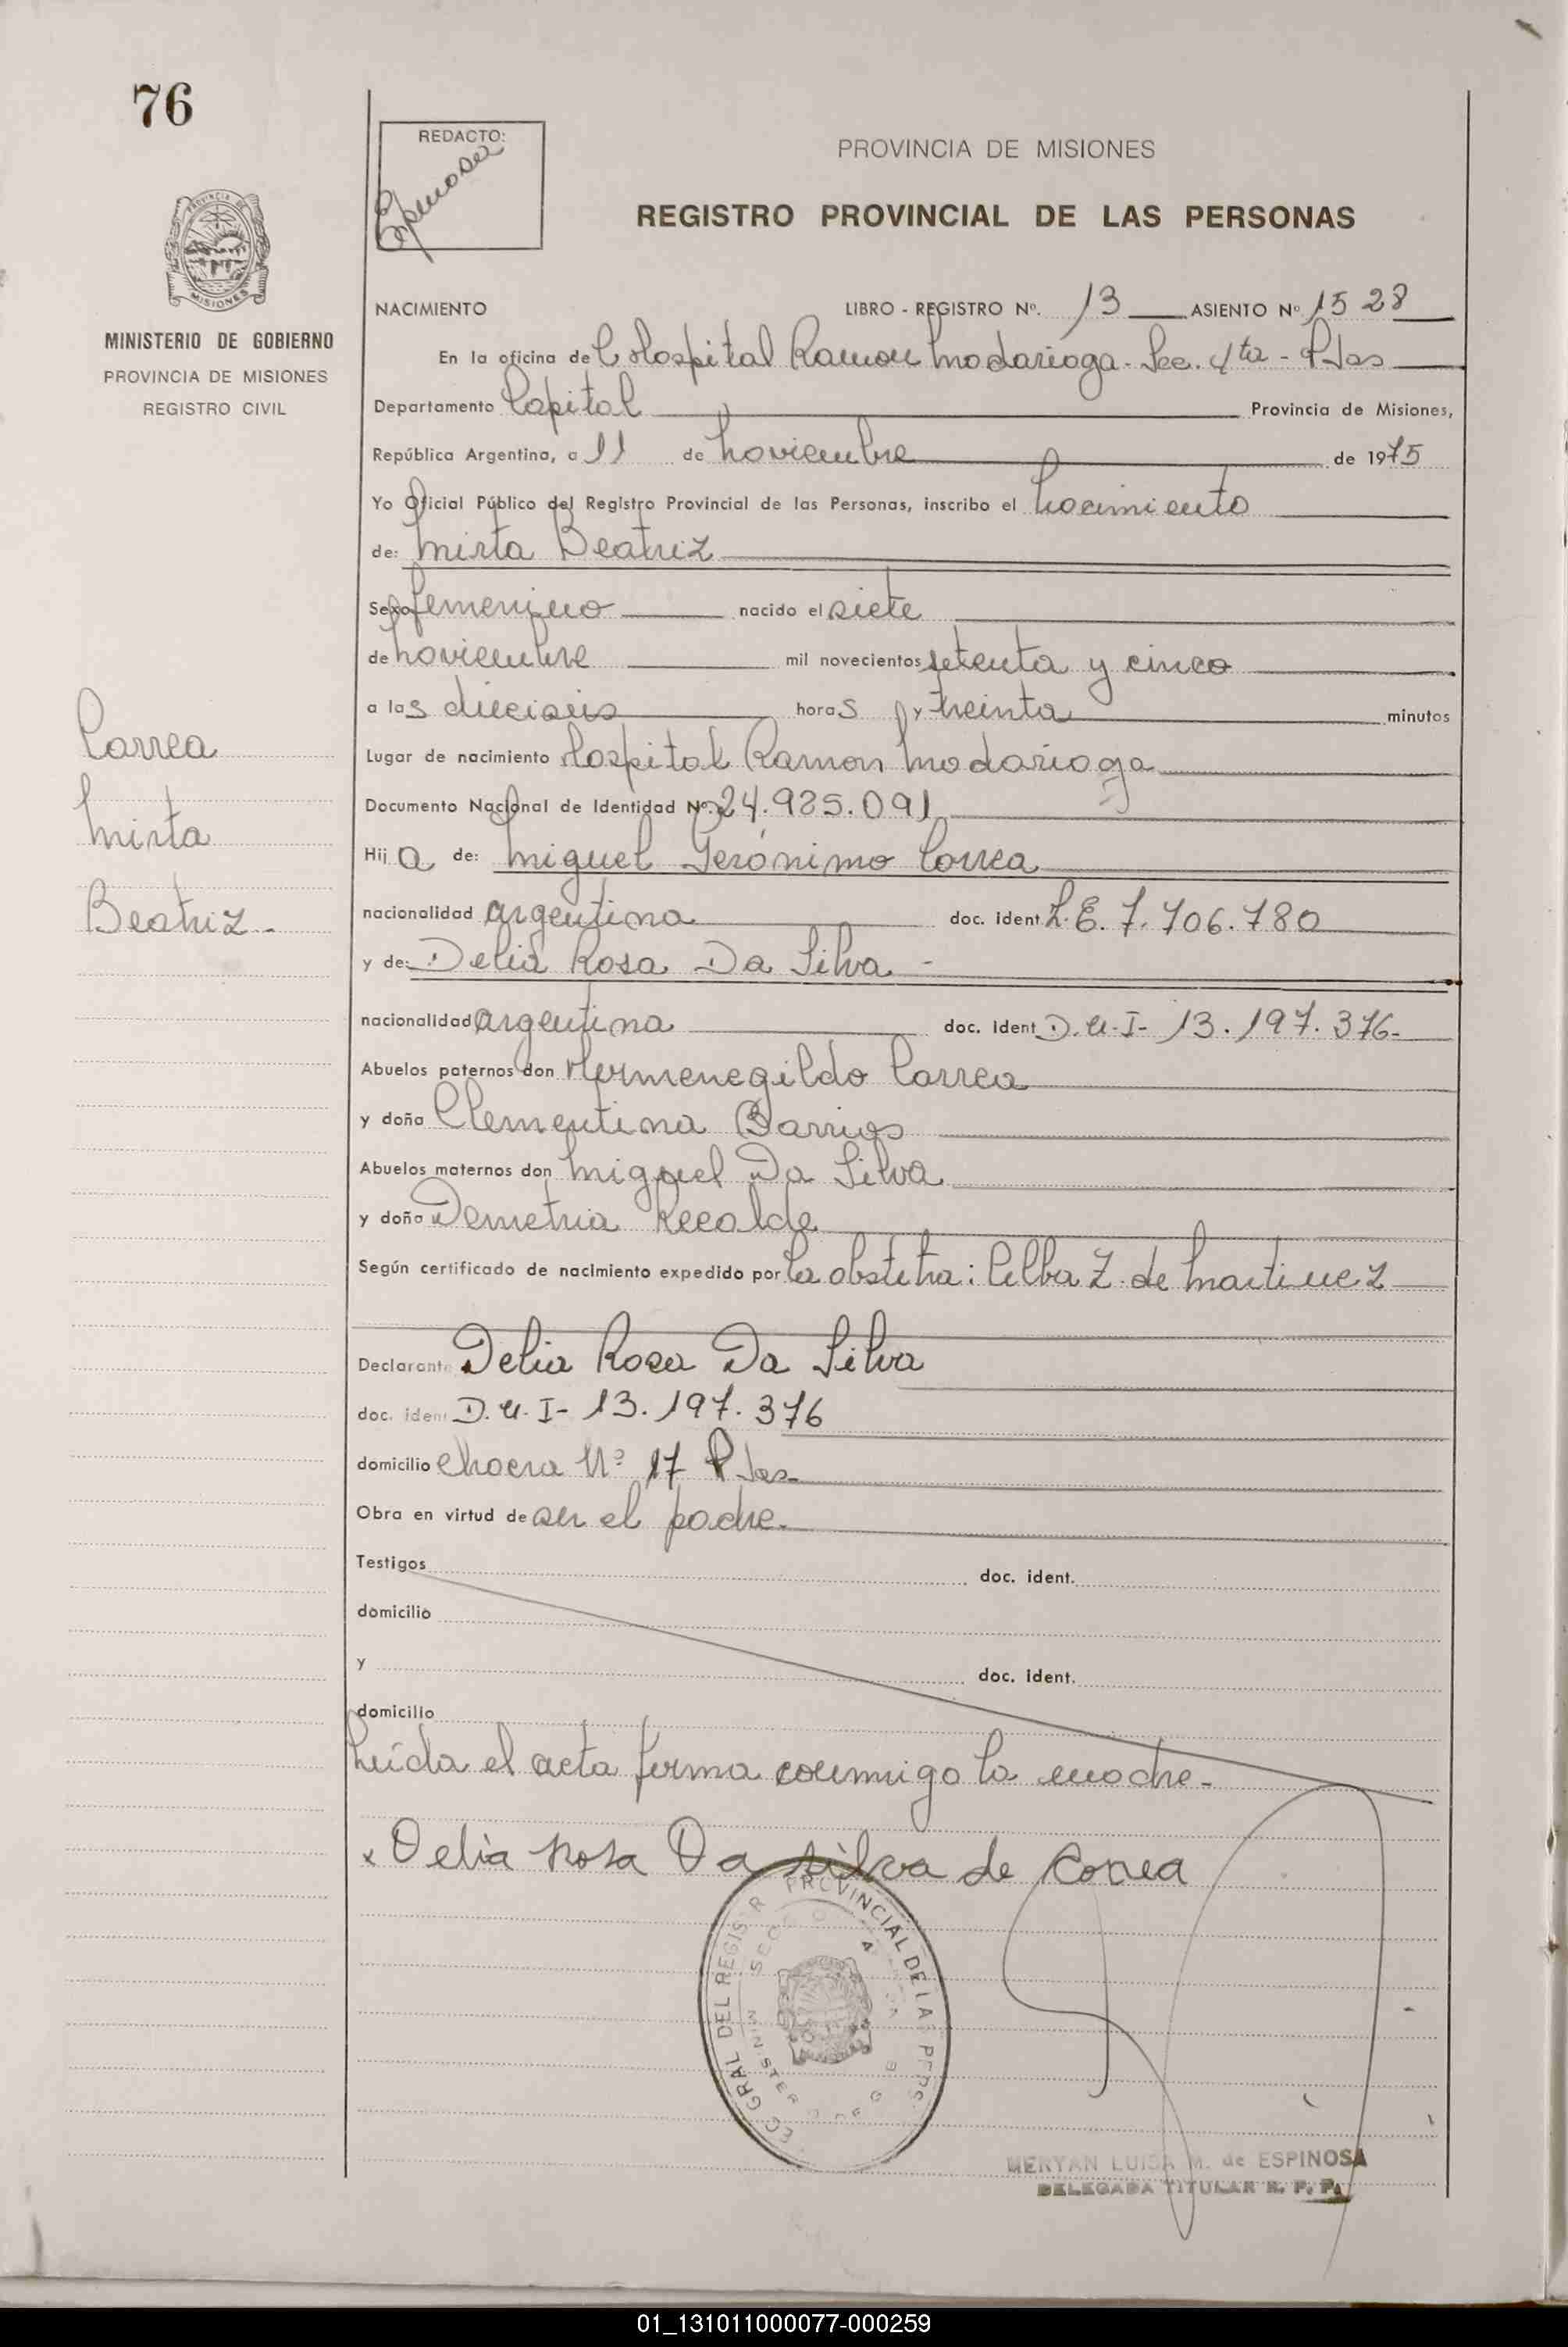 76
REDACTO:
Espinosa
PROVINCIA DE MISIONES
REGISTRO PROVINCIAL DE LAS PERSONAS
MISIONES
MINISTERIO DE GOBIERNO
PROVINCIA DE MISIONES
REGISTRO CIVIL
NACIMIENTO LIBRO - REGISTRO Nº. 13 ASIENTO Nº. 1528
En la oficina de Hospital Ramon Madariaga - Sec. 4ta - Pdas
Departamento Capital Provincia de Misiones,
República Argentina, a 11 de noviembre de 1975
Yo Oficial Público del Registro Provincial de las Personas, inscribo el nacimiento
de: Mirta Beatriz
Sexo femenino nacido el siete
de noviembre mil novecientos setenta y cinco
a las dieciseis horas y treinta minutos
Lugar de nacimiento Hospital Ramon Madariaga
Documento Nacional de Identidad Nº. 24.925.091
Hija de: Miguel Gerónimo Correa
nacionalidad argentina doc. ident. L.E. 7.706.780
y de: Delia Rosa Da Silva -
nacionalidad argentina doc. ident. D.U.I- 13.197.376-
Abuelos paternos don Hermenegildo Correa
y doña Clementina Barrios
Abuelos maternos don Miguel Da Silva
y doña Demetria Recalde
Según certificado de nacimiento expedido por la obstetra: Z. de Martinez
Declarante Delia Rosa Da Silva
doc. ident D.U.I- 13.197.376
domicilio Chacra Nº 17 Pdas-
Obra en virtud de ser el padre-
Testigos doc. ident.
domicilio
y doc. ident.
domicilio
Leída el acta firma conmigo la madre-
x Delia Rosa Da Silva de Correa
Correa
Mirta
Beatriz-
MERYAN LUISA M. de ESPINOSA
DELEGADA TITULAR R. P. P.
01_131011000077-000259